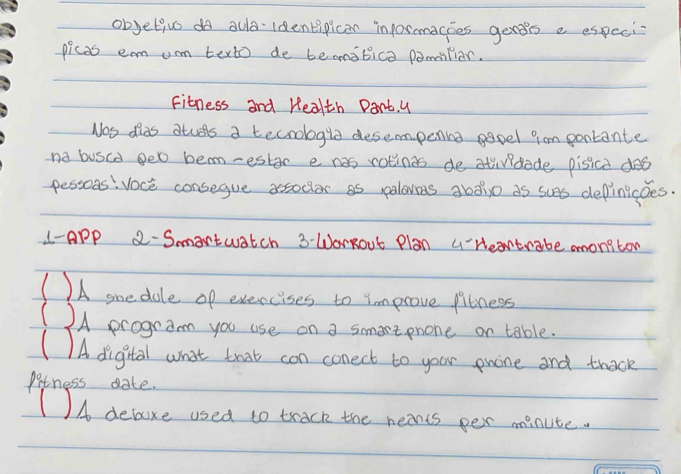 objetivo da aula: identificar informações gerais e especí-
ficas em um texto de temática familiar.
Fitness and Health Part.4
Nos dias atuais a tecnologia desempenha papel importante
na busca pelo bem-estar e nas rotinas de atividade física das
pessoas! Você consegue associar as palavras abaixo as suas definições.
1-APP 2-Smartwatch 3-Workout Plan 4-Heartrate monitor
( ) A shedule of exercises to improve fitness
( ) A program you use on a smartphone or table.
( ) A digital what that can conect to your phone and thack
fitness date.
( ) A devuxe used to track the hearts per minute.